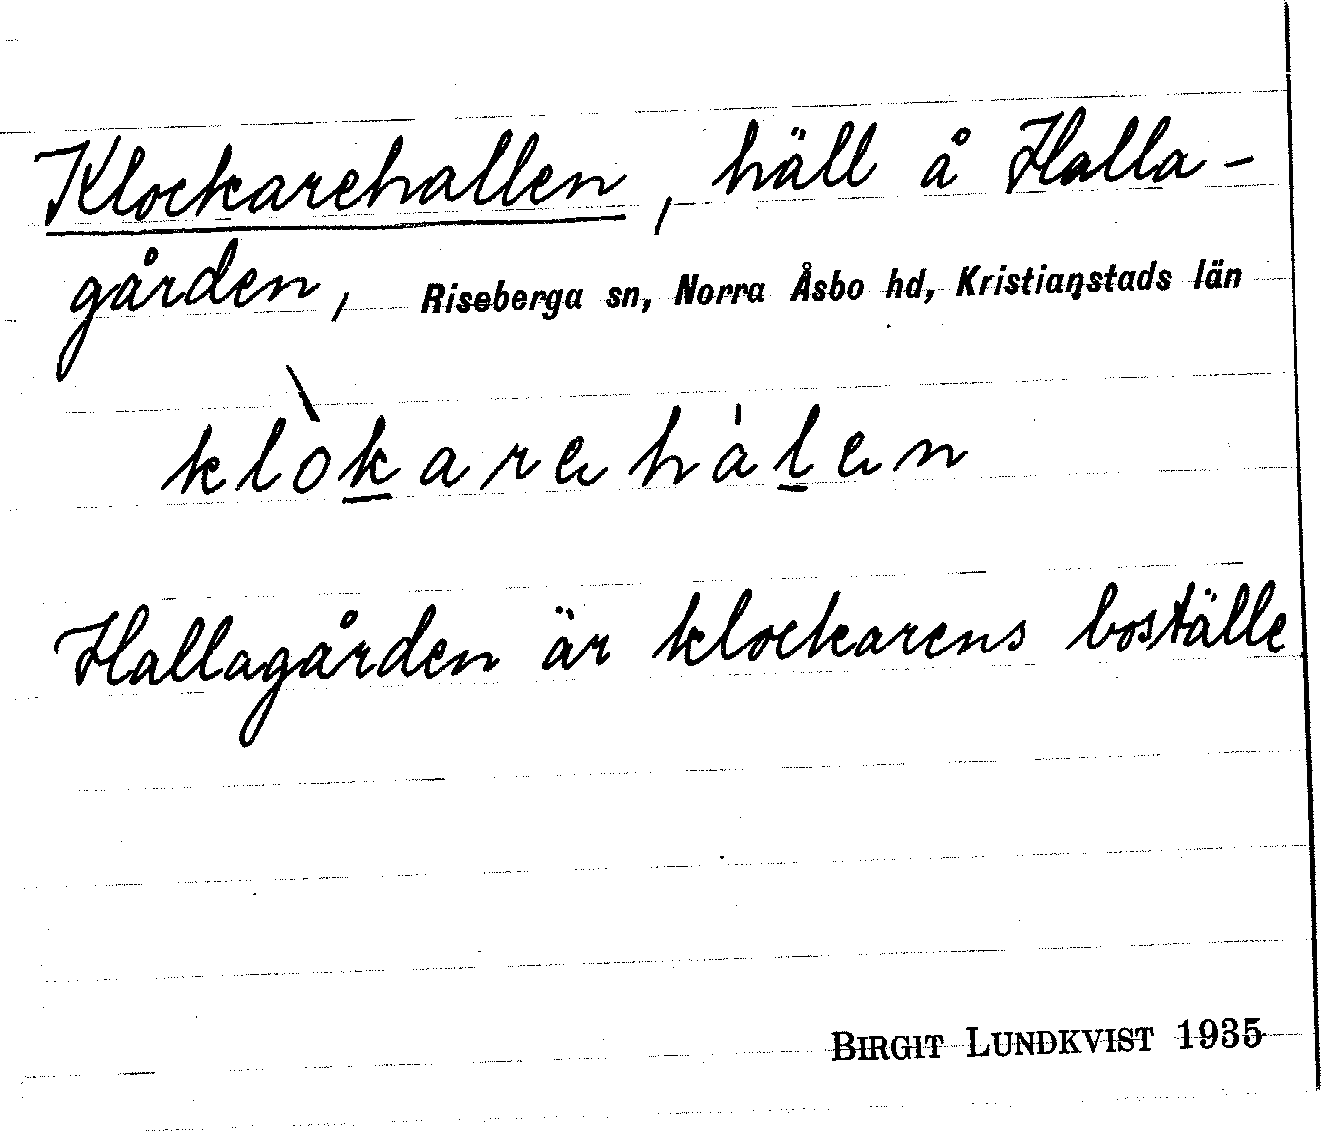 Klockarehallen, häll å Halla-
gården, Riseberga sn, Norra Åsbo hd, Kristianstads län
klòkarehálen
Hallagården är klockarens boställe
BIRGIT LUNDKVIST 1935